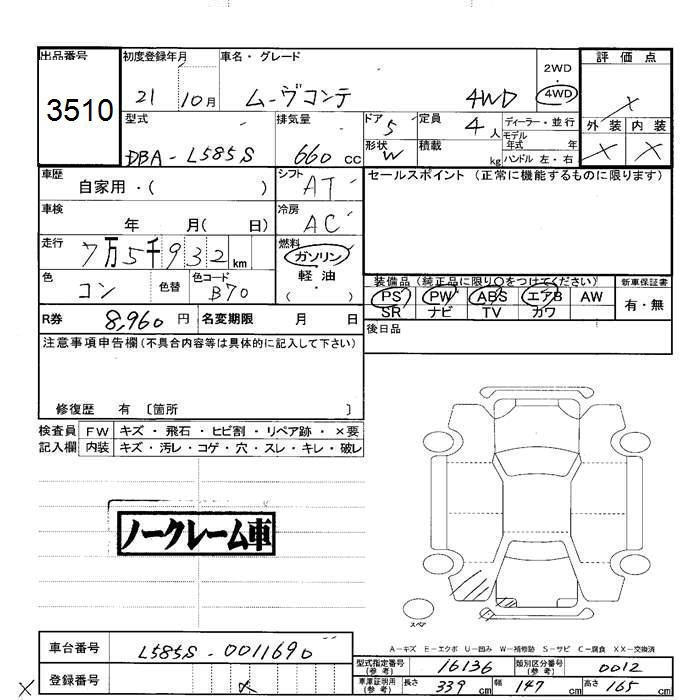 出品番号 初度登録年月 車名・グレード 2WD 評価点
3510 21 10月 ムーヴコンテ 4WD 4WD ×
型式 排気量 ドア 5 定員 4人 ディーラー・並行 外装 内装
DBA-L585S 660cc 形状 W 積載 kg モデル年式 年 × ×
ハンドル 左・右
車歴 自家用・( ) シフト AT セールスポイント (正常に機能するものに限ります)
車検 年 月( 日) 冷房 AC
走行 7万5千932km 燃料 ガソリン
軽油
色 コン 色替 色コード B70 ( )
装備品 (純正品に限り○をつけてください) 新車保証書
PS PW ABS エアB AW 有・無
SR ナビ TV カワ
R券 8,960円 名変期限 月 日 後日品
注意事項申告欄(不具合内容等は具体的に記入して下さい)
修復歴 有 〔箇所 〕
検査員 FW キズ・飛石・ヒビ割・リペア跡・×要
記入欄 内装 キズ・汚レ・コゲ・穴・スレ・キレ・破レ
ノークレーム車
スペア
A-キズ E-エクボ U-凹み W-補修跡 S-サビ C-腐食 XX-交換済
車台番号 L585S-0011690
型式指定番号(参考) 16136 類別区分番号(参考) 0012
× 登録番号 ×
車庫証明用(参考) 長さ 339cm 幅 147cm 高さ 165cm